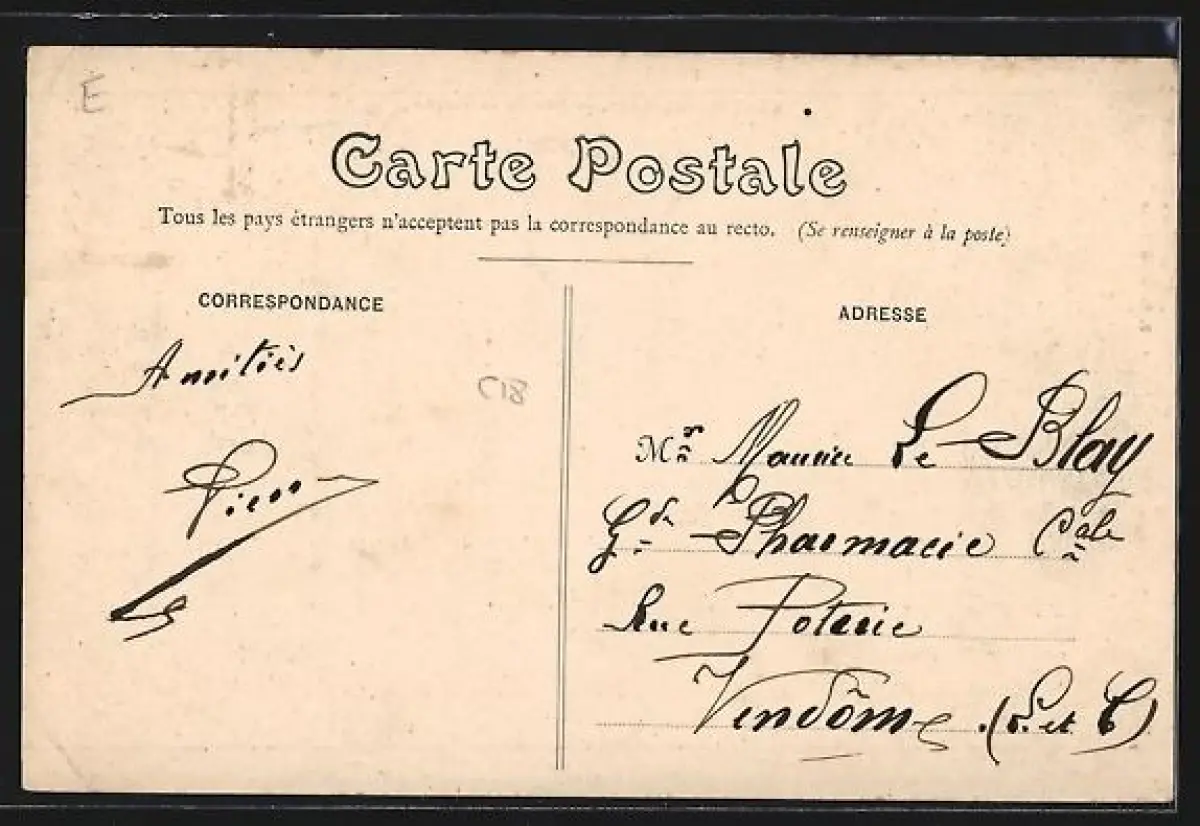 E
Carte Postale
Tous les pays étrangers n'acceptent pas la correspondance au recto. (Se renseigner à la poste)
CORRESPONDANCE
Amitiés
C18
ADRESSE
Mr Maurice Le Blay
Gde Pharmacie Cale
Rue Poterie
Vendôme. (L. et C)